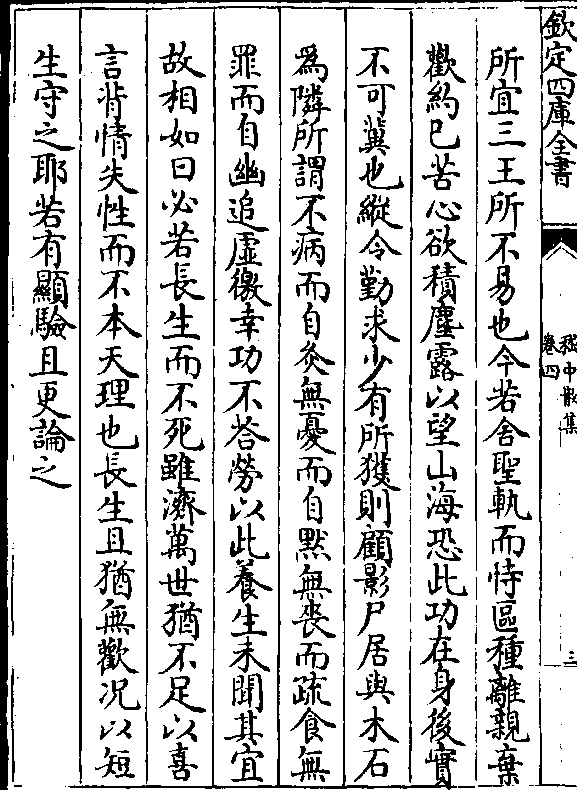 欽定四庫全書
嵇中散集
卷四
三
所宜三王所不易也今若舍聖軌而恃區種離親棄
歡約已苦心欲積塵露以望山海恐此功在身後實
不可冀也縱令勤求少有所獲則顧影尸居與木石
為隣所謂不病而自灸無憂而自黙無喪而疏食無
罪而自幽追虛徼幸功不荅勞以此養生未聞其宜
故相如曰必若長生而不死雖濟萬世猶不足以喜
言背情失性而不本天理也長生且猶無歡况以短
生守之耶若有顯驗且更論之